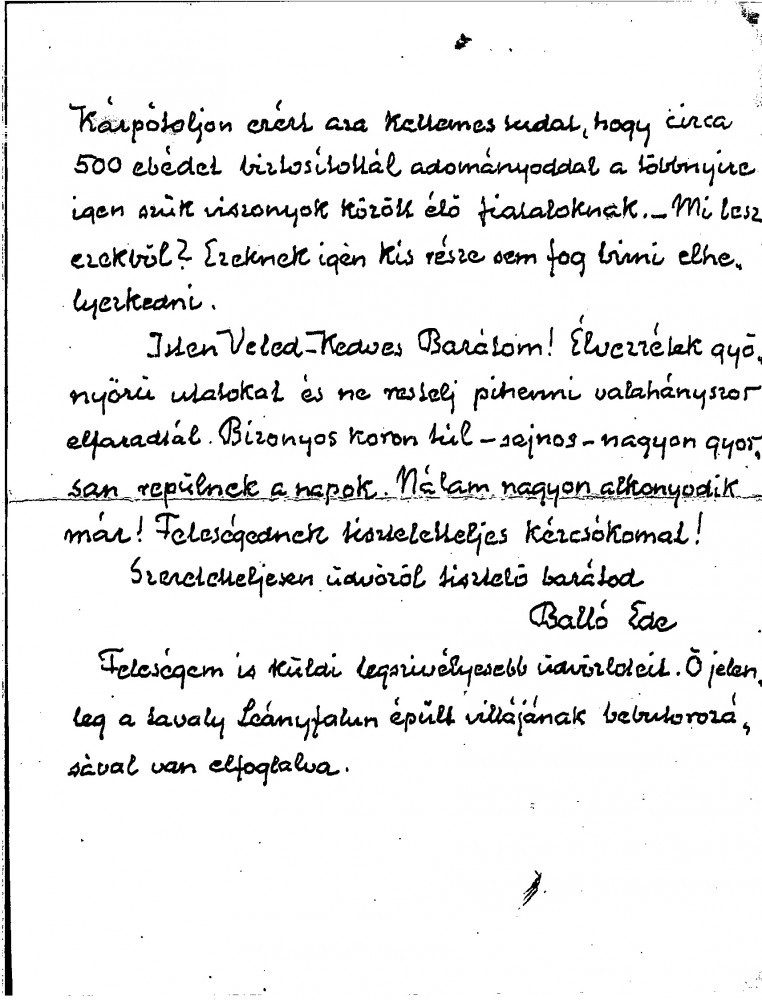 Kárpótoljon ezért aza kellemes tudat, hogy circa
500 ebédet biztosítottál adományoddal a többnyire
igen szük viszonyok között élő fiataloknak. – Mi lesz
ezekből? Ezeknek igen kis része sem fog birni elhe„
lyezkedni.
Isten Veled – Kedves Barátom! Élvezzétek gyö„
nyörü utatokat és ne restelj pihenni valahányszor
elfáradtál. Bizonyos koron túl – sajnos – nagyon gyor„
san repülnek a napok. Nálam nagyon alkonyodik
már! Feleségednek tiszteletteljes kézcsókomat!
Szeretetteljesen üdvözöl tisztelő barátod
Balló Ede
Feleségem is küldi legszivélyesebb üdvözleteit. Ő jelen„
leg a tavaly Leányfalun épült villájának bebutorozá„
sával van elfoglalva.